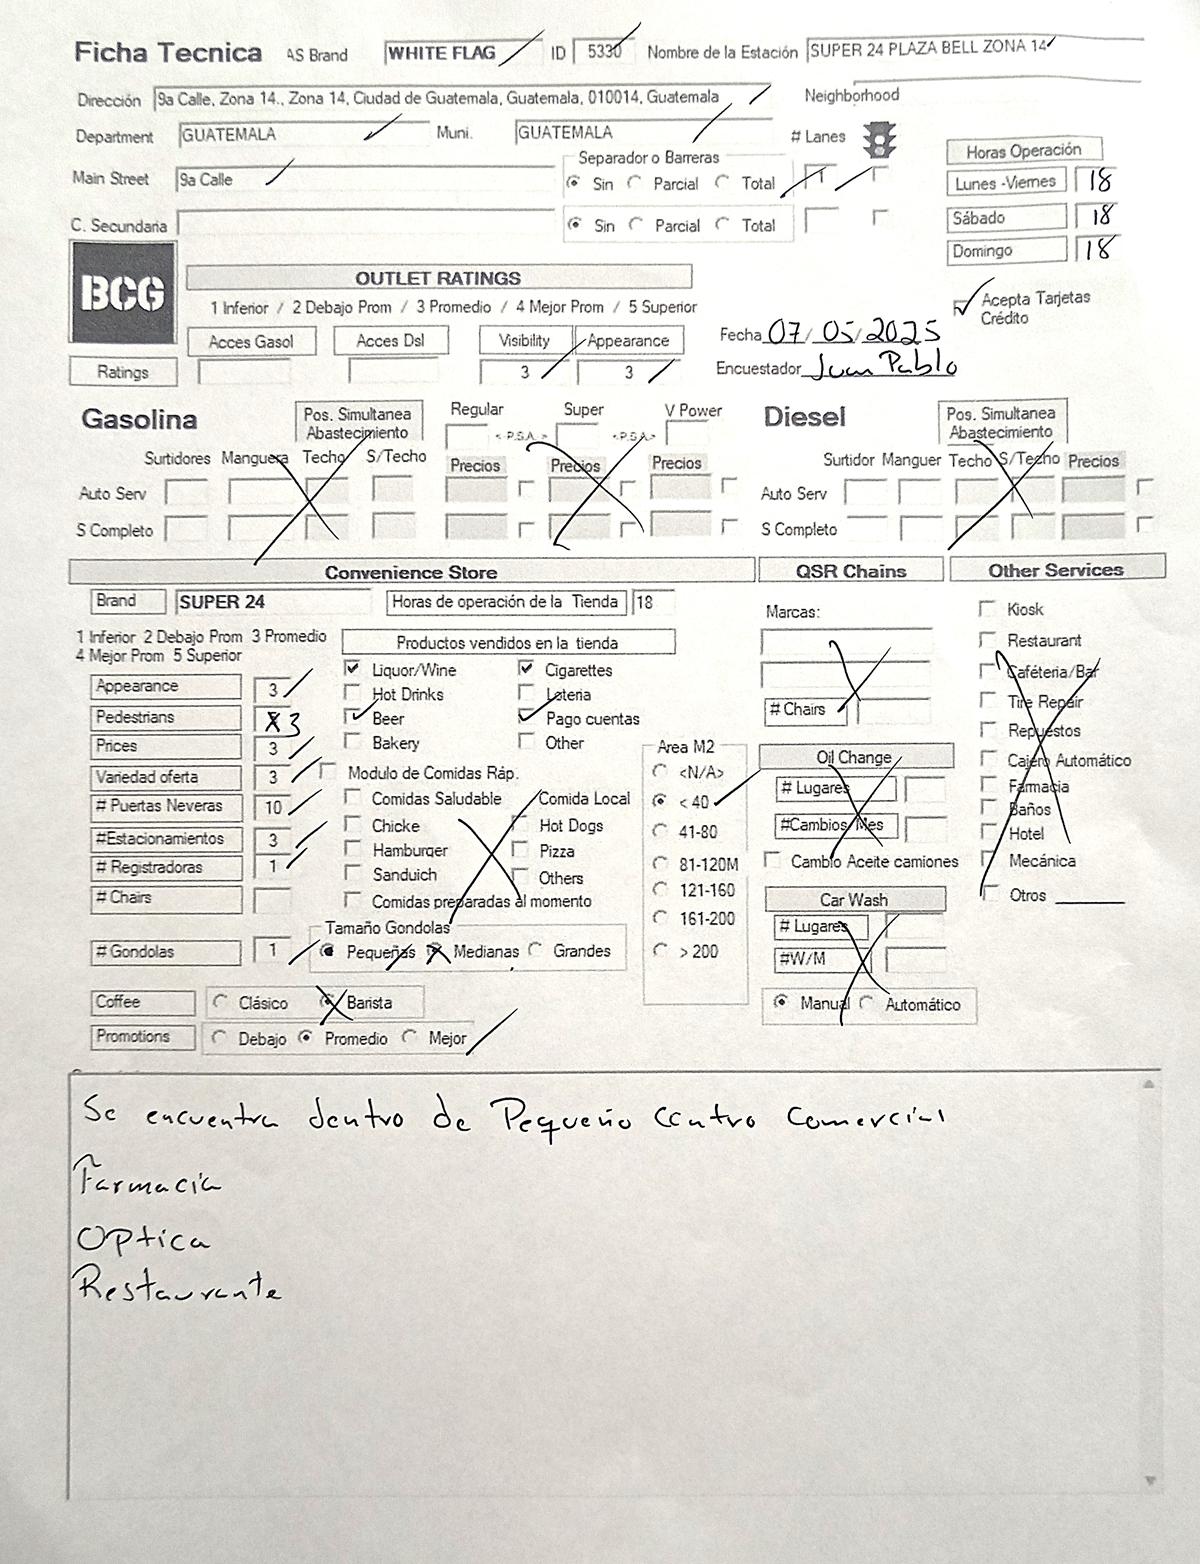 Ficha Tecnica AS Brand WHITE FLAG ID 5330 Nombre de la Estación SUPER 24 PLAZA BELL ZONA 14
Dirección 9a Calle, Zona 14., Zona 14, Ciudad de Guatemala, Guatemala, 010014, Guatemala Neighborhood
Department GUATEMALA Muni. GUATEMALA # Lanes
Separador o Barreras
Main Street 9a Calle Sin Parcial Total
C. Secundaria Sin Parcial Total
Horas Operación
Lunes -Viernes 18
Sábado 18
Domingo 18
BCG
OUTLET RATINGS
1 Inferior / 2 Debajo Prom / 3 Promedio / 4 Mejor Prom / 5 Superior
Acepta Tarjetas
Crédito
Acces Gasol Acces Dsl Visibility Appearance
Ratings 3 3
Fecha 07/05/2025
Encuestador Juan Pablo
Gasolina Pos. Simultanea
Abastecimiento
Regular Super V Power
< P.S.A. > <P.S.A>
Surtidores Manguera Techo S/Techo Precios Precios Precios
Auto Serv
S Completo
Diesel Pos. Simultanea
Abastecimiento
Surtidor Manguer Techo S/Techo Precios
Auto Serv
S Completo
Convenience Store
Brand SUPER 24 Horas de operación de la Tienda 18
1 Inferior 2 Debajo Prom 3 Promedio
4 Mejor Prom 5 Superior
Appearance 3
Pedestrians 3
Prices 3
Variedad oferta 3
# Puertas Neveras 10
#Estacionamientos 3
# Registradoras 1
# Chairs
# Gondolas 1
Productos vendidos en la tienda
Liquor/Wine Cigarettes
Hot Drinks Loteria
Beer Pago cuentas
Bakery Other
Modulo de Comidas Ráp.
Comidas Saludable Comida Local
Chicke Hot Dogs
Hamburger Pizza
Sanduich Others
Comidas preparadas al momento
Tamaño Gondolas
Pequeñas Medianas Grandes
Coffee Clásico Barista
Promotions Debajo Promedio Mejor
Area M2
<N/A>
< 40
41-80
81-120M
121-160
161-200
> 200
QSR Chains
Marcas:
# Chairs
Oil Change
# Lugares
#Cambios/Mes
Cambio Aceite camiones
Car Wash
# Lugares
#W/M
Manual Automático
Other Services
Kiosk
Restaurant
Caféteria/Bar
Tire Repair
Repuestos
Cajero Automático
Farmacia
Baños
Hotel
Mecánica
Otros
Se encuentra dentro de Pequeño Centro Comercial
Farmacia
Optica
Restaurante